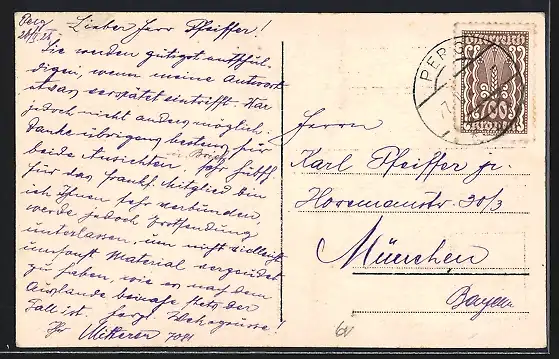 Perg
Lieber Herr Pfeiffer!
Sie werden gütigst entschul-
digen, wenn meine Antwort
etwas verspätet eintrifft. War
jedoch nicht anders möglich.
Danke übrigens bestens für
beide Ansichten
für das Mitglied bin
ich Ihnen sehr verbunden,
werde jedoch Zusendung
unterlassen, um nicht vielleicht
umsonst Material vergeudet
zu haben, wie es nach dem
Auslande beinahe stets der
Fall ist.
Ihr
PERG
Herrn
Karl Pfeiffer jr.
30/3
München
Bayern